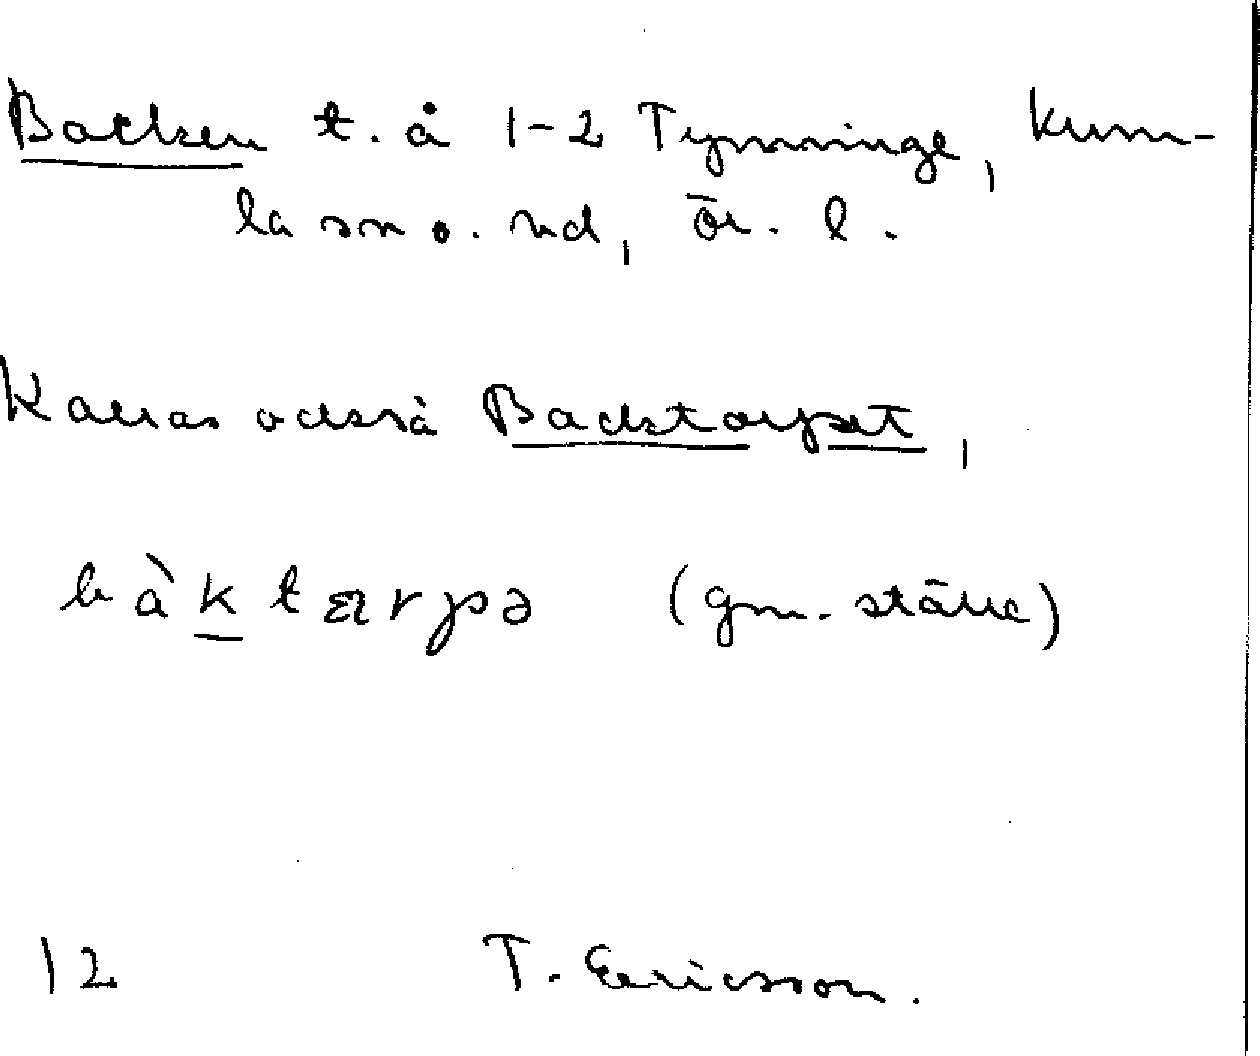 Backen t. å 1-2 Tynninge, Kum-
la sn o. hd, Ör. l.
Kallas också Backstorpet,
bà k t ɷ r p ə (gm. ställe)
12 T. Ericsson.